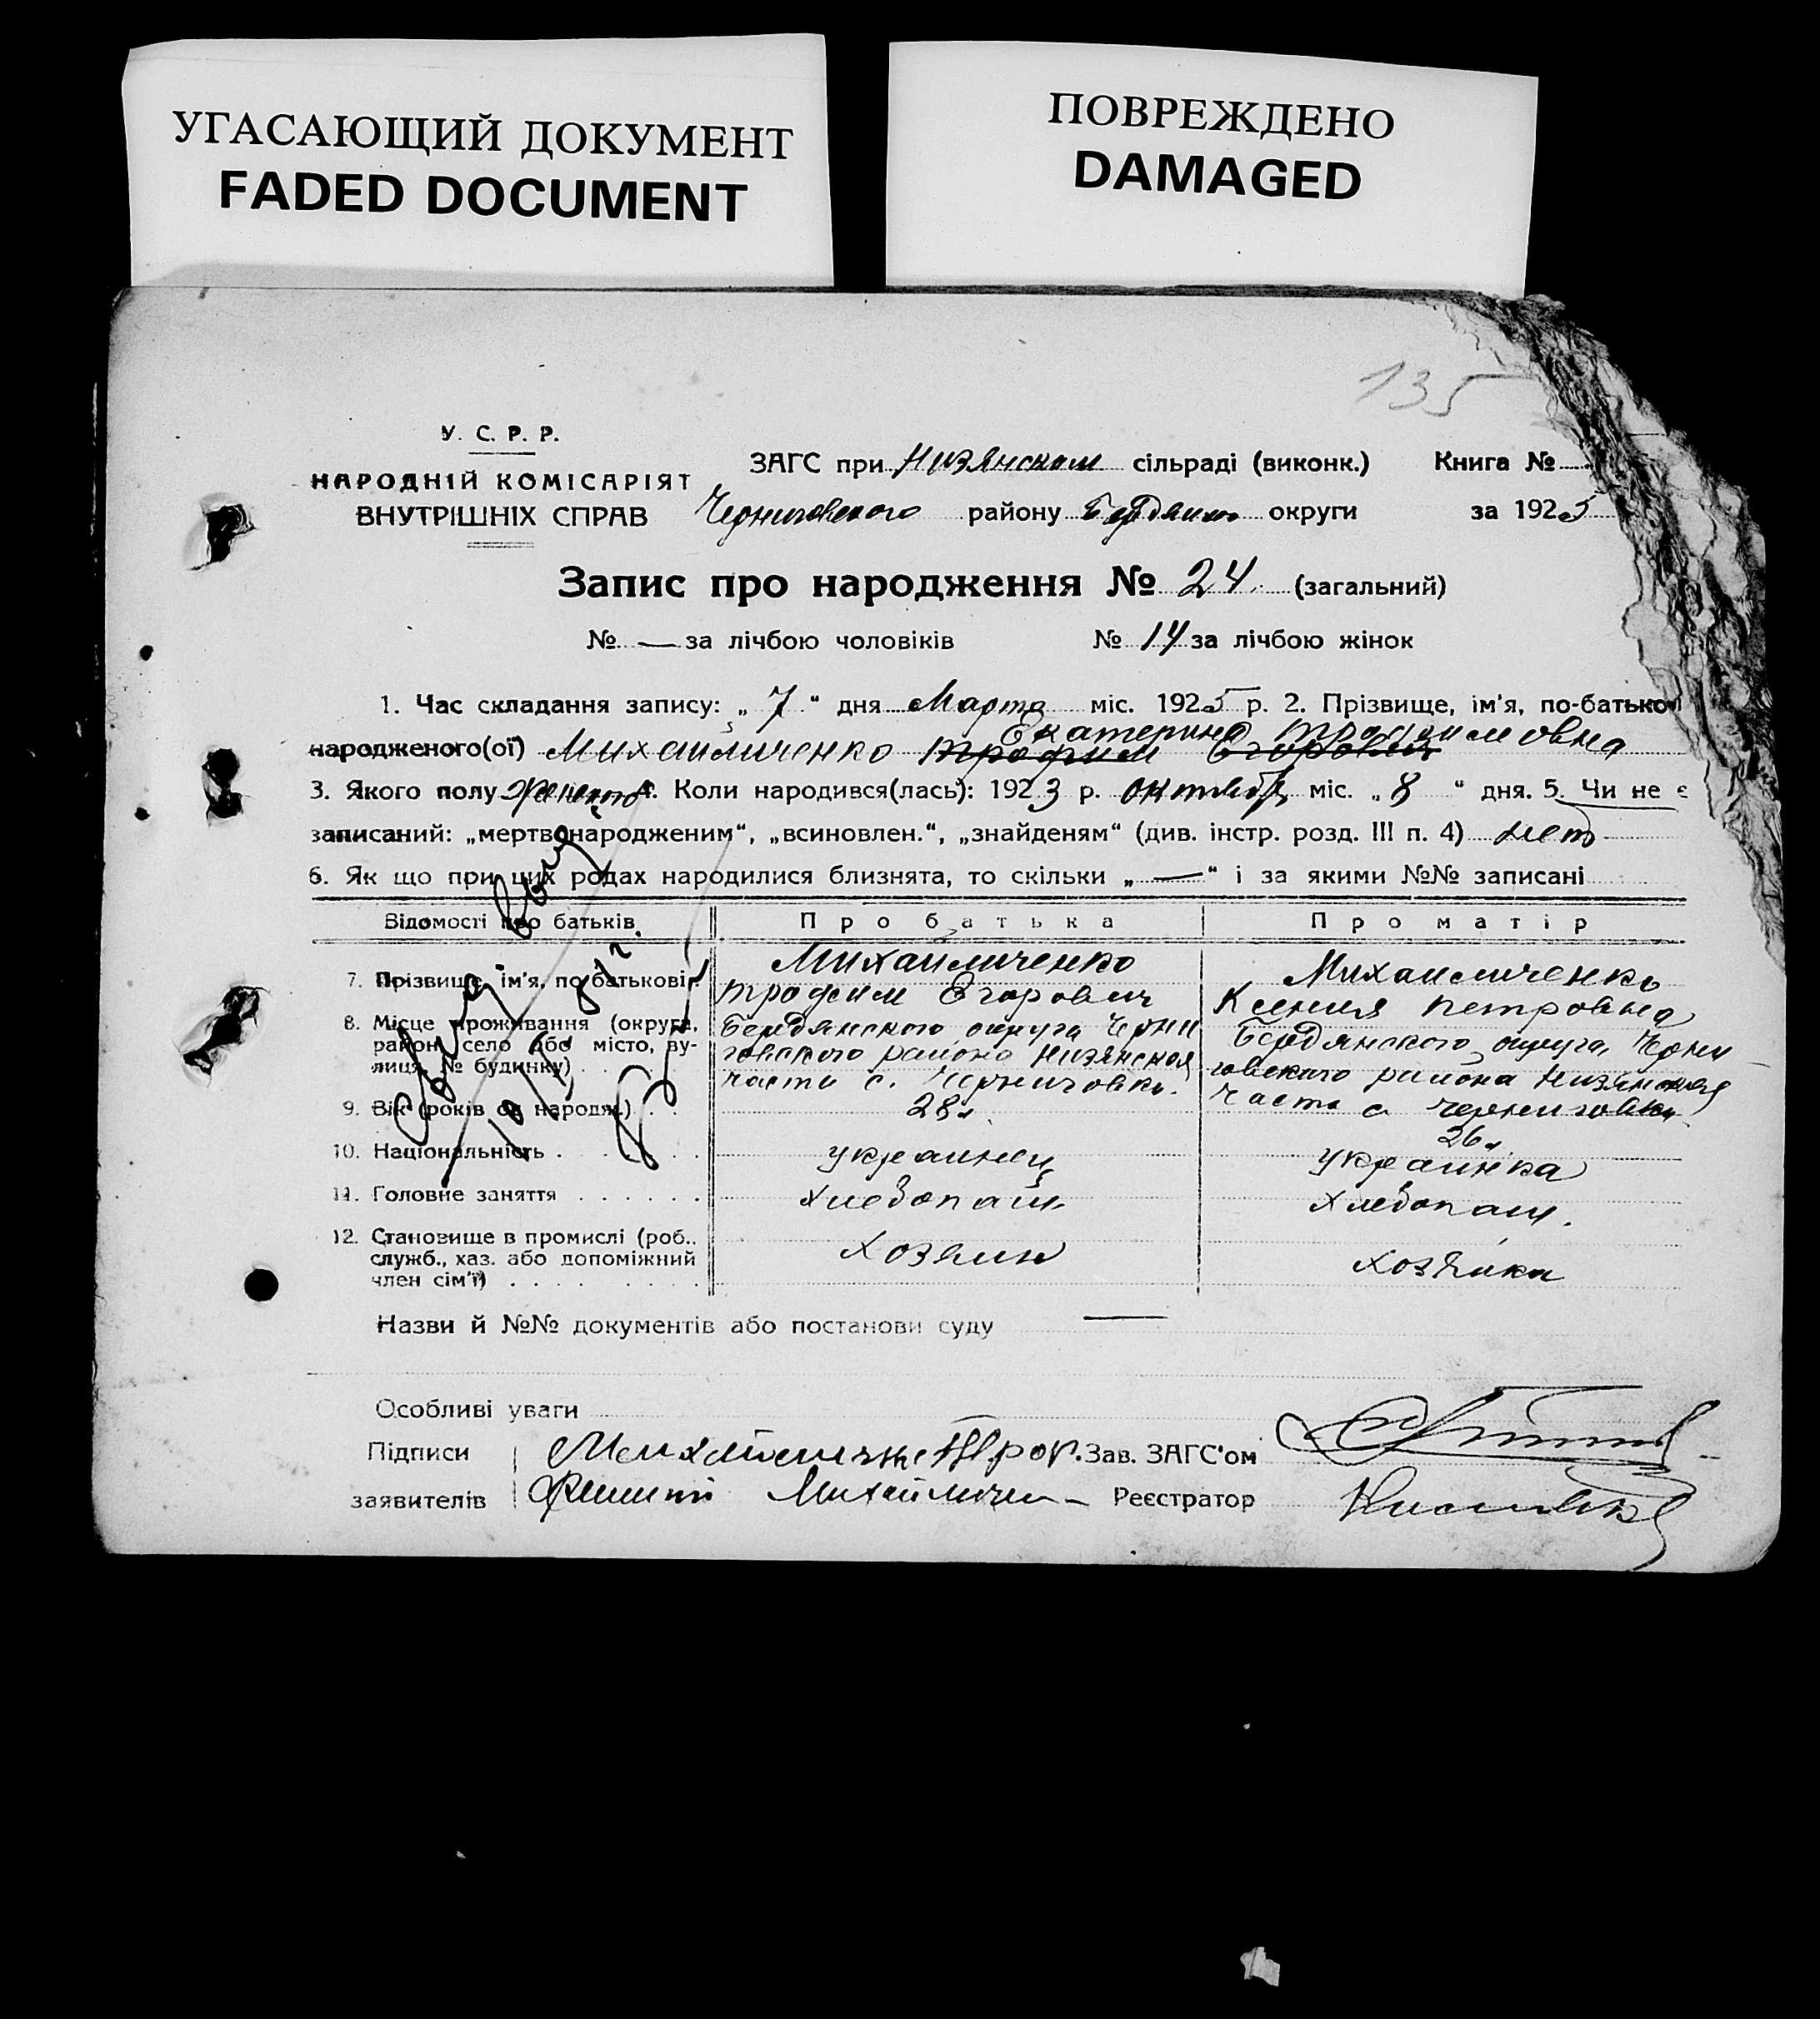 УГАСАЮЩИЙ ДОКУМЕНТ
FADED DOCUMENT
ПОВРЕЖДЕНО
DAMAGED
135
У. С. Р. Р.
НАРОДНІЙ КОМІСАРІЯТ
ВНУТРІШНІХ СПРАВ
ЗАГС при Низянском сільраді (виконк.) Книга №
Черниговского району Бердянс округи за 1925
Запис про народження № 24. (загальний)
№ — за лічбою чоловіків № 14 за лічбою жінок
1. Час складання запису: „ 7 “ дня Марта міс. 1925 р. 2. Прізвище, ім'я, по-батькові
Екатерина Трофимовна
народженого(ої) Михайличенко Трофим Егорович
3. Якого полу женского 4. Коли народився(лась): 1923 р. октября міс. „ 8 “ дня. 5. Чи не є
записаний: „мертвонародженим“, „всиновлен.“, „знайденям“ (див. інстр. розд. III п. 4) нет
6. Як що при цих родах народилися близнята, то скільки „ — “ і за якими №№ записані
Відомості про батьків. Про батька Про матір
7. Прізвище, ім'я, по батькові Михайличенко Трофим Егорович Михайличенко Ксения Петровна
8. Місце проживання (округа, район, село або місто, вулиця, № будинку) Бердянского округа Черниговского района Низянская часть с. Черниговки. Бердянского округа, Черниговского района Низянская часть с Черниговки
9. Вік (років од народж.) 28 л. 26 л.
10. Національність украинец украинка
11. Головне заняття хлебопаш. хлебопаш.
12. Становище в промислі (роб., служб., хаз. або допоміжний член сім'ї) хозяин хозяйка
Назви й №№ документів або постанови суду —
Особливі уваги
Підписи Михайличенко Троф. Зав. ЗАГС'ом
заявителів Михайличен Реєстратор